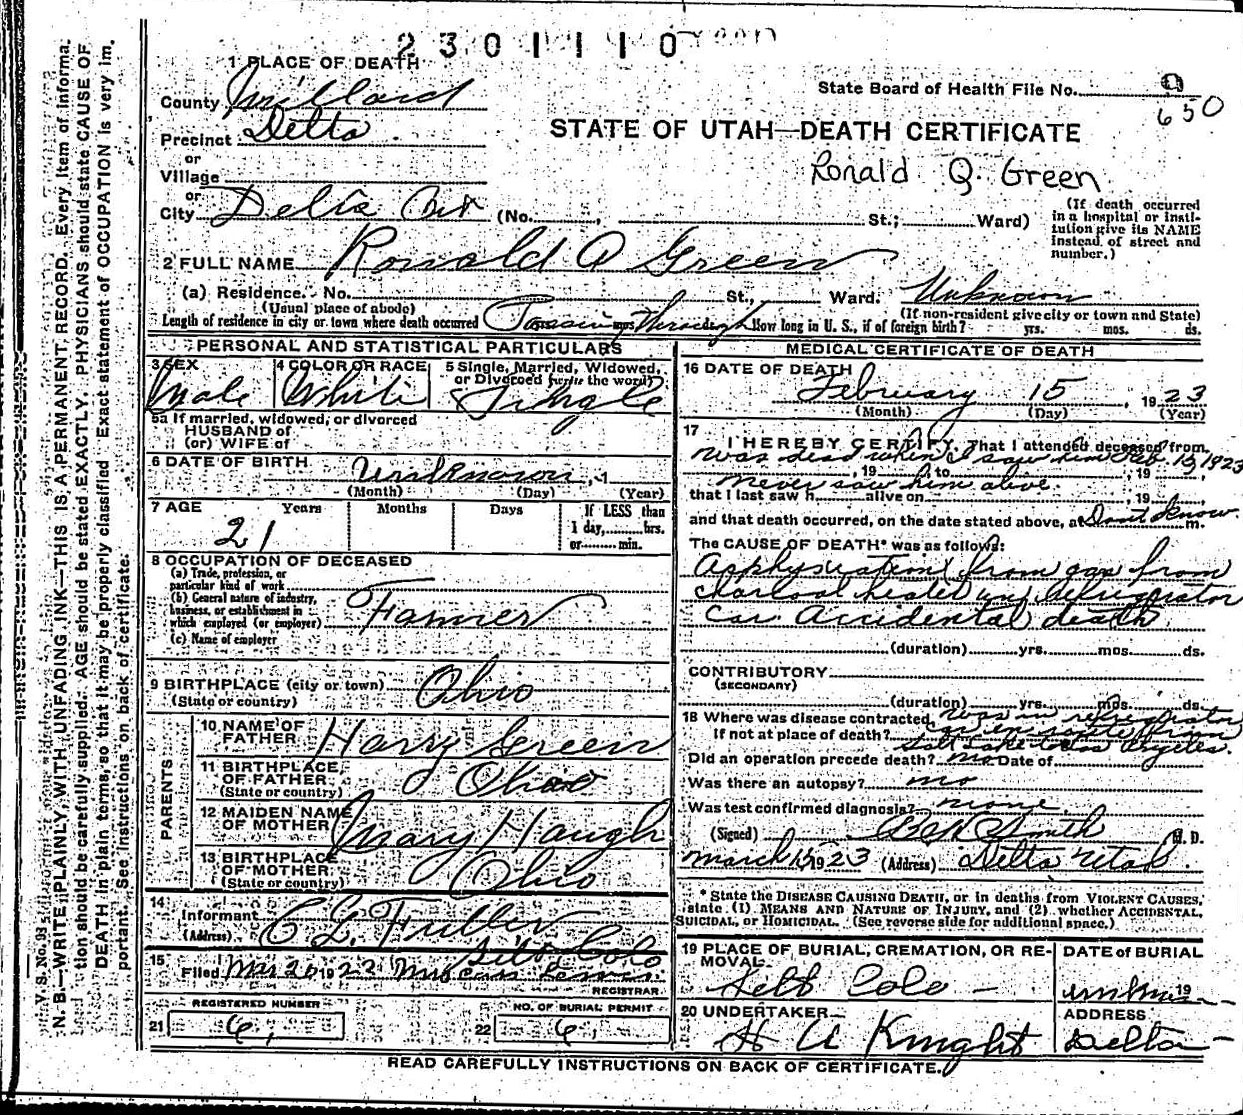 2301110
1 PLACE OF DEATH
County Millard
State Board of Health File No. 9
650
Precinct Delta
STATE OF UTAH—DEATH CERTIFICATE
or
Village
Ronald Q. Green
or
City Delta (No. , St.; Ward)
(If death occurred
in a hospital or insti-
tution give its NAME
instead of street and
number.)
2 FULL NAME Ronald Q Green
(a) Residence. No. St., Ward. Unknown
(Usual place of abode) (If non-resident give city or town and State)
Length of residence in city or town where death occurred Passing Through How long in U. S., if of foreign birth? yrs. mos. ds.
PERSONAL AND STATISTICAL PARTICULARS
3 SEX 4 COLOR OR RACE 5 Single, Married, Widowed,
or Divorced (write the word)
Male White Single
5a If married, widowed, or divorced
HUSBAND of
(or) WIFE of
6 DATE OF BIRTH Unknown , 1
(Month) (Day) (Year)
7 AGE Years Months Days If LESS than
1 day, hrs.
or min.
21
8 OCCUPATION OF DECEASED
(a) Trade, profession, or
particular kind of work
(b) General nature of industry,
business, or establishment in
which employed (or employer) Farmer
(c) Name of employer
9 BIRTHPLACE (city or town) Ohio
(State or country)
PARENTS
10 NAME OF
FATHER Harry Green
11 BIRTHPLACE
OF FATHER Ohio
(State or country)
12 MAIDEN NAME
OF MOTHER Mary Haugh
13 BIRTHPLACE
OF MOTHER Ohio
(State or country)
14
Informant C L Fuller
(Address) Colo
15
Filed Mar 20 1922 Mrs Lewis
REGISTRAR
REGISTERED NUMBER NO. OF BURIAL PERMIT
21 6 22 6
MEDICAL CERTIFICATE OF DEATH
16 DATE OF DEATH
February 15, 1923
(Month) (Day) (Year)
17
I HEREBY CERTIFY, That I attended deceased from
was dead when I saw him Feb. 1923
, 19 , to , 19
never saw him alive.
that I last saw h alive on , 19
and that death occurred, on the date stated above, at Don't know m.
The CAUSE OF DEATH* was as follows:
Asphyxiation from gas from
charcoal heater in refrigerator
car. Accidental death
(duration) yrs. mos. ds.
CONTRIBUTORY
(SECONDARY)
(duration) yrs. mos. ds.
18 Where was disease contracted, Was in refrigerator
If not at place of death? car en route from
Salt Lake to Los Angeles.
Did an operation precede death? no Date of
Was there an autopsy? no
Was test confirmed diagnosis? none
(Signed) Smith M. D.
March 15, 1923 (Address) Delta Utah.
* State the DISEASE CAUSING DEATH, or in deaths from VIOLENT CAUSES,
state (1) MEANS AND NATURE OF INJURY, and (2) whether ACCIDENTAL,
SUICIDAL, or HOMICIDAL. (See reverse side for additional space.)
19 PLACE OF BURIAL, CREMATION, OR RE-
MOVAL Colo —
DATE of BURIAL
unknown 19
20 UNDERTAKER
H A Knight
ADDRESS
Delta —
READ CAREFULLY INSTRUCTIONS ON BACK OF CERTIFICATE.
V. S. No. 98
N. B.—WRITE PLAINLY, WITH UNFADING INK—THIS IS A PERMANENT RECORD. Every item of informa-
tion should be carefully supplied. AGE should be stated EXACTLY. PHYSICIANS should state CAUSE OF
DEATH in plain terms, so that it may be properly classified. Exact statement of OCCUPATION is very im-
portant. See instructions on back of certificate.